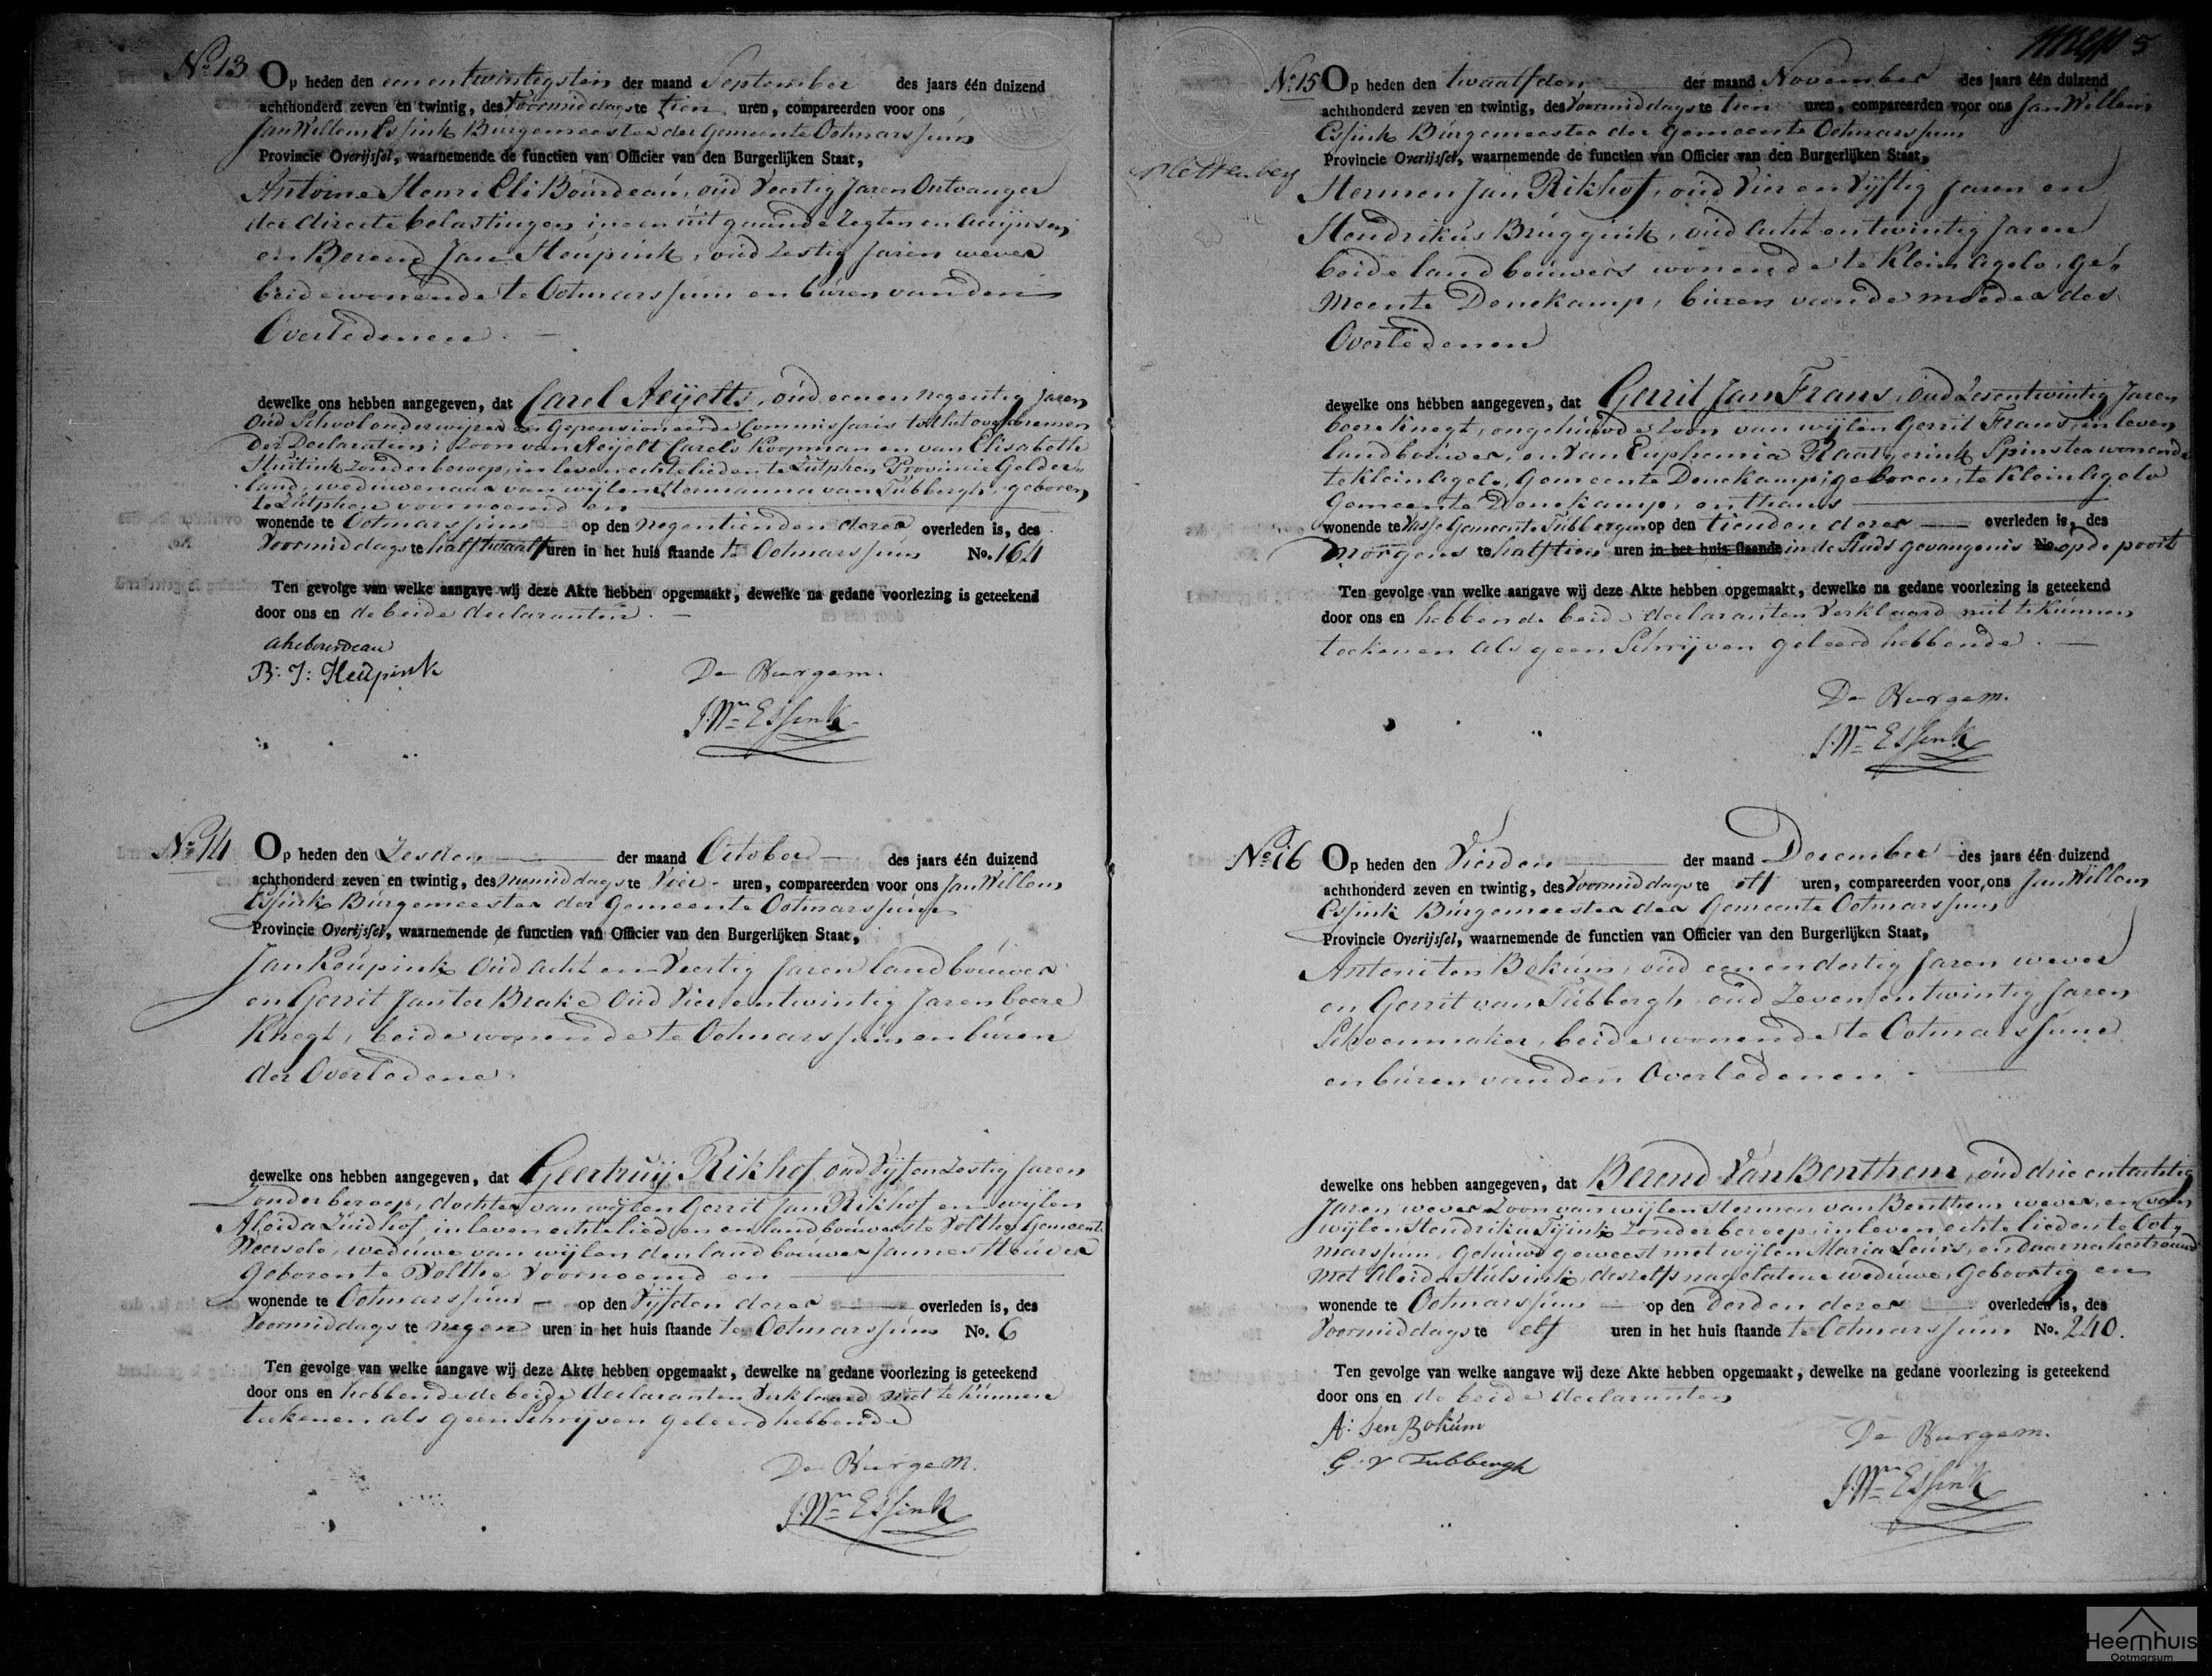 No 13 Op heden den een en twintigsten der maand September des jaars één duizend
achthonderd zeven en twintig, des Voormiddags te tien uren, compareerden voor ons
Jan Willem Essink Burgemeester der Gemeente Ootmarssum
Provincie Overijssel, waarnemende de functien van Officier van den Burgerlijken Staat,
Antoine Henri Eli Bourdeau, oud Veertig Jaren Ontvanger
der directe belastingen in en uitgaande regten en accijnsen
en Berend Jan Heupink, oud Zestig Jaren wever
beide wonende te Ootmarssum en buren van den
Overledenen.
dewelke ons hebben aangegeven, dat Carel Reijelts, oud een en negentig Jaren
Oud Schoolonderwijzer en Gepensioneerde Commissaris tot het overnemen
der Declaratien; Zoon van Reijelt Carels Koopman en van Elisabeth
Sluitink zonder beroep, in leven echtelieden te Zutphen Provincie Gelder„
land, weduwenaar van wijlen Hermanna van Tubbergh, geboren
te Zutphen voornoemd en
wonende te Ootmarssum op den negentienden dezer overleden is, des
Voormiddags te half twaalf uren in het huis staande te Ootmarssum No. 164
Ten gevolge van welke aangave wij deze Akte hebben opgemaakt, dewelke na gedane voorlezing is geteekend
door ons en de beide declaranten.
ahebourdeau
B: J: Heupink
De Burgem.
J. Wm Essink
No 14 Op heden den Zesden der maand October des jaars één duizend
achthonderd zeven en twintig, des namiddags te Vier uren, compareerden voor ons Jan Willem
Essink Burgemeester der Gemeente Ootmarssum
Provincie Overijssel, waarnemende de functien van Officier van den Burgerlijken Staat,
Jan Reupink Oud acht en Veertig Jaren landbouwer
en Gerrit Jan ter Brake Oud Vier en twintig Jaren boere
Knegt, beide wonende te Ootmarssum en buren
der Overledene.
dewelke ons hebben aangegeven, dat Geertruij Rikhof oud Vijf en Zestig Jaren
Zonder beroep, dochter van wijlen Gerrit Jan Rikhof en wijlen
Aleida Zuidhof, in leven echtelieden en landbouwers te Volthe Gemeente
Weerselo, weduwe van wijlen den landbouwer Jannes Heuver
Geboren te Volthe Voornoemd en
wonende te Ootmarssum op den Vijfden dezer overleden is, des
Voormiddags te negen uren in het huis staande te Ootmarssum No. 6
Ten gevolge van welke aangave wij deze Akte hebben opgemaakt, dewelke na gedane voorlezing is geteekend
door ons en hebbende de beide declaranten Verklaard niet te kunnen
teekenen als geen Schrijven geleerd hebbende
De Burgem.
J. Wm Essink
5
No 15 Op heden den twaalfden der maand November des jaars één duizend
achthonderd zeven en twintig, des Voormiddags te tien uren, compareerden voor ons Jan Willem
Essink Burgemeester der Gemeente Ootmarssum
Provincie Overijssel, waarnemende de functien van Officier van den Burgerlijken Staat,
Hermen Jan Rikhof, oud Vier en Vijftig Jaren en
Hendrikus Bruggink, oud acht en twintig Jaren
beide landbouwers wonende te Klein Agelo, Ge„
meente Denekamp, buren van de moeder des
Overledenen
dewelke ons hebben aangegeven, dat Gerrit Jan Frans, oud Zes en twintig Jaren
boereknegt, ongehuwde Zoon van wijlen Gerrit Frans, in leven
landbouwer, en van Euphemia Raatgerink Spinster wonende
te Klein Agelo, Gemeente Denekamp, geboren te Klein Agelo
Gemeente Denekamp, en thans
wonende te Vasse Gemeente Tubbergen op den tienden dezer overleden is, des
morgens te half tien uren in het huis staande in de Stads gevangenis No. op de poort
Ten gevolge van welke aangave wij deze Akte hebben opgemaakt, dewelke na gedane voorlezing is geteekend
door ons en hebbende beide declaranten Verklaard niet te kunnen
teekenen als geen Schrijven geleerd hebbende.
De Burgem.
J. Wm Essink
No 16 Op heden den Vierden der maand December des jaars één duizend
achthonderd zeven en twintig, des Voormiddags te elf uren, compareerden voor ons Jan Willem
Essink Burgemeester der Gemeente Ootmarssum
Provincie Overijssel, waarnemende de functien van Officier van den Burgerlijken Staat,
Antoni ten Bokum, oud een en dertig Jaren wever
en Gerrit van Tubbergh oud Zeven en twintig Jaren
Schoenmaker, beide wonende te Ootmarssum
en buren van den Overledenen.
dewelke ons hebben aangegeven, dat Berend Van Benthem, oud drie en tachtig
Jaren, wever Zoon van wijlen Hermen van Benthem wever, en van
wijlen Hendrika Tijink Zonder beroep, in leven echtelieden te Oot„
marssum, gehuwd geweest met wijlen Maria Leurs, en daarna hertrouwd
met Aleida Hulsink, deszelfs nagelatene weduwe, Geboortig en
wonende te Ootmarssum op den derden dezer overleden is, des
Voormiddags te elf uren in het huis staande te Ootmarssum No. 240.
Ten gevolge van welke aangave wij deze Akte hebben opgemaakt, dewelke na gedane voorlezing is geteekend
door ons en de beide declaranten
A: ten Bokum
G: v Tubbergh
De Burgem.
J. Wm Essink
Heemhuis
Ootmarsum